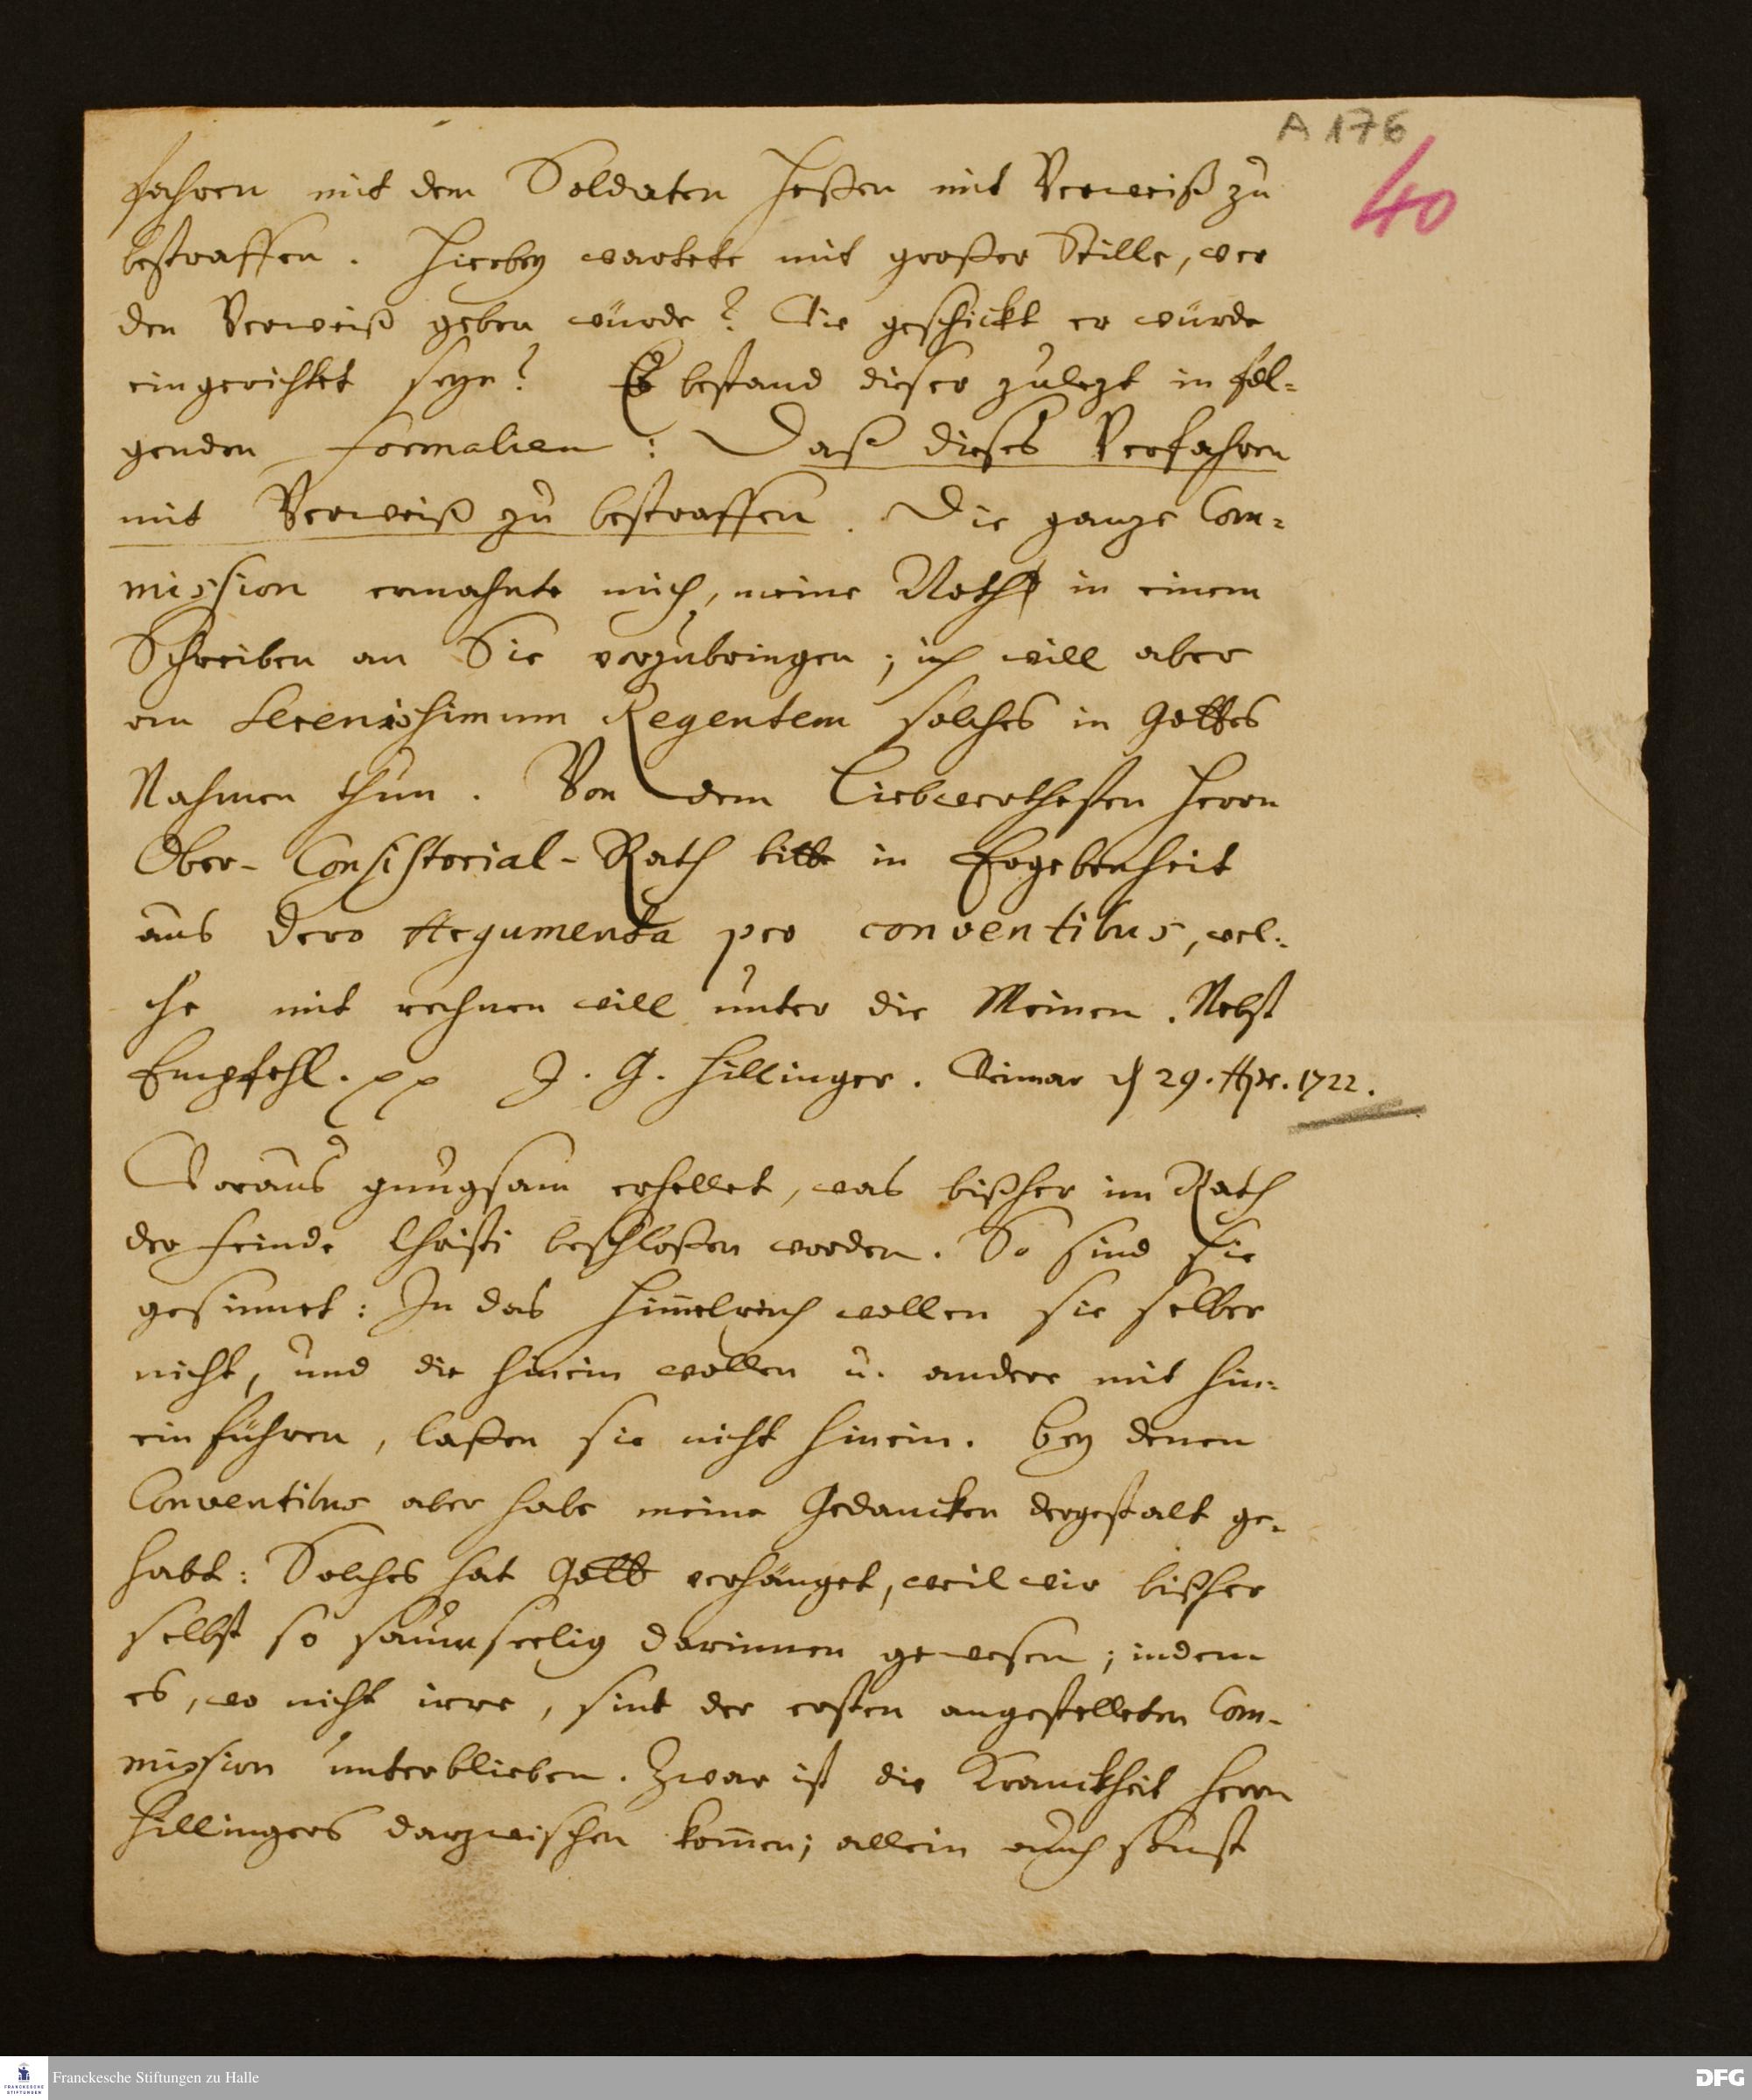 A 176
40
fahren mit dem Soldaten Heßen mit Verweiß zu
bestraffen. Hierbey wartete mit großer Stille, wer
den Verweiß geben würde? Wie geschickt er würde
eingerichtet seyn? Es bestand dieser zulezt in fol=
genden Formalien: Daß dieses Verfahren
mit Verweiß zu bestraffen. Die ganze Com=
mission ermahnte mich, meine Noth in einem
Schreiben an Sie vorzubringen; ich will aber
an Serenissimum Regentem solches in Gottes
Nahmen thun. Von dem Liebwerthesten Herrn
Ober-Consistorial-Rath bitte in Ergebenheit
aus Dero Argumenta pro conventibus, wel=
che mit rechnen will unter die Meinen. Nebst
Empfehl. pp J. G. Hillinger. Weimar d 29. Apr. 1722.
Woraus gnugsam erhellet, was bißher im Rath
der Feinde Christi beschloßen worden. So sind sie
gesinnet: In das Him̄elreich wollen sie selber
nicht, und die hinein wollen u. andere mit hin=
ein führen, laßen sie nicht hinein. Bey denen
Conventibus aber habe meine Gedancken dergestalt ge=
habt: Solches hat Gott verhänget, weil wir bißher
selbst so saumseelig darinnen gewesen; indem
es, wo nicht irre, sint der ersten angestelleten Com=
mission unterblieben. Zwar ist die Kranckheit Herrn
Hillingers darzwischen kom̄en; allein auch sonst
Franckesche Stiftungen zu Halle
FRANCKESCHE STIFTUNGEN
DFG